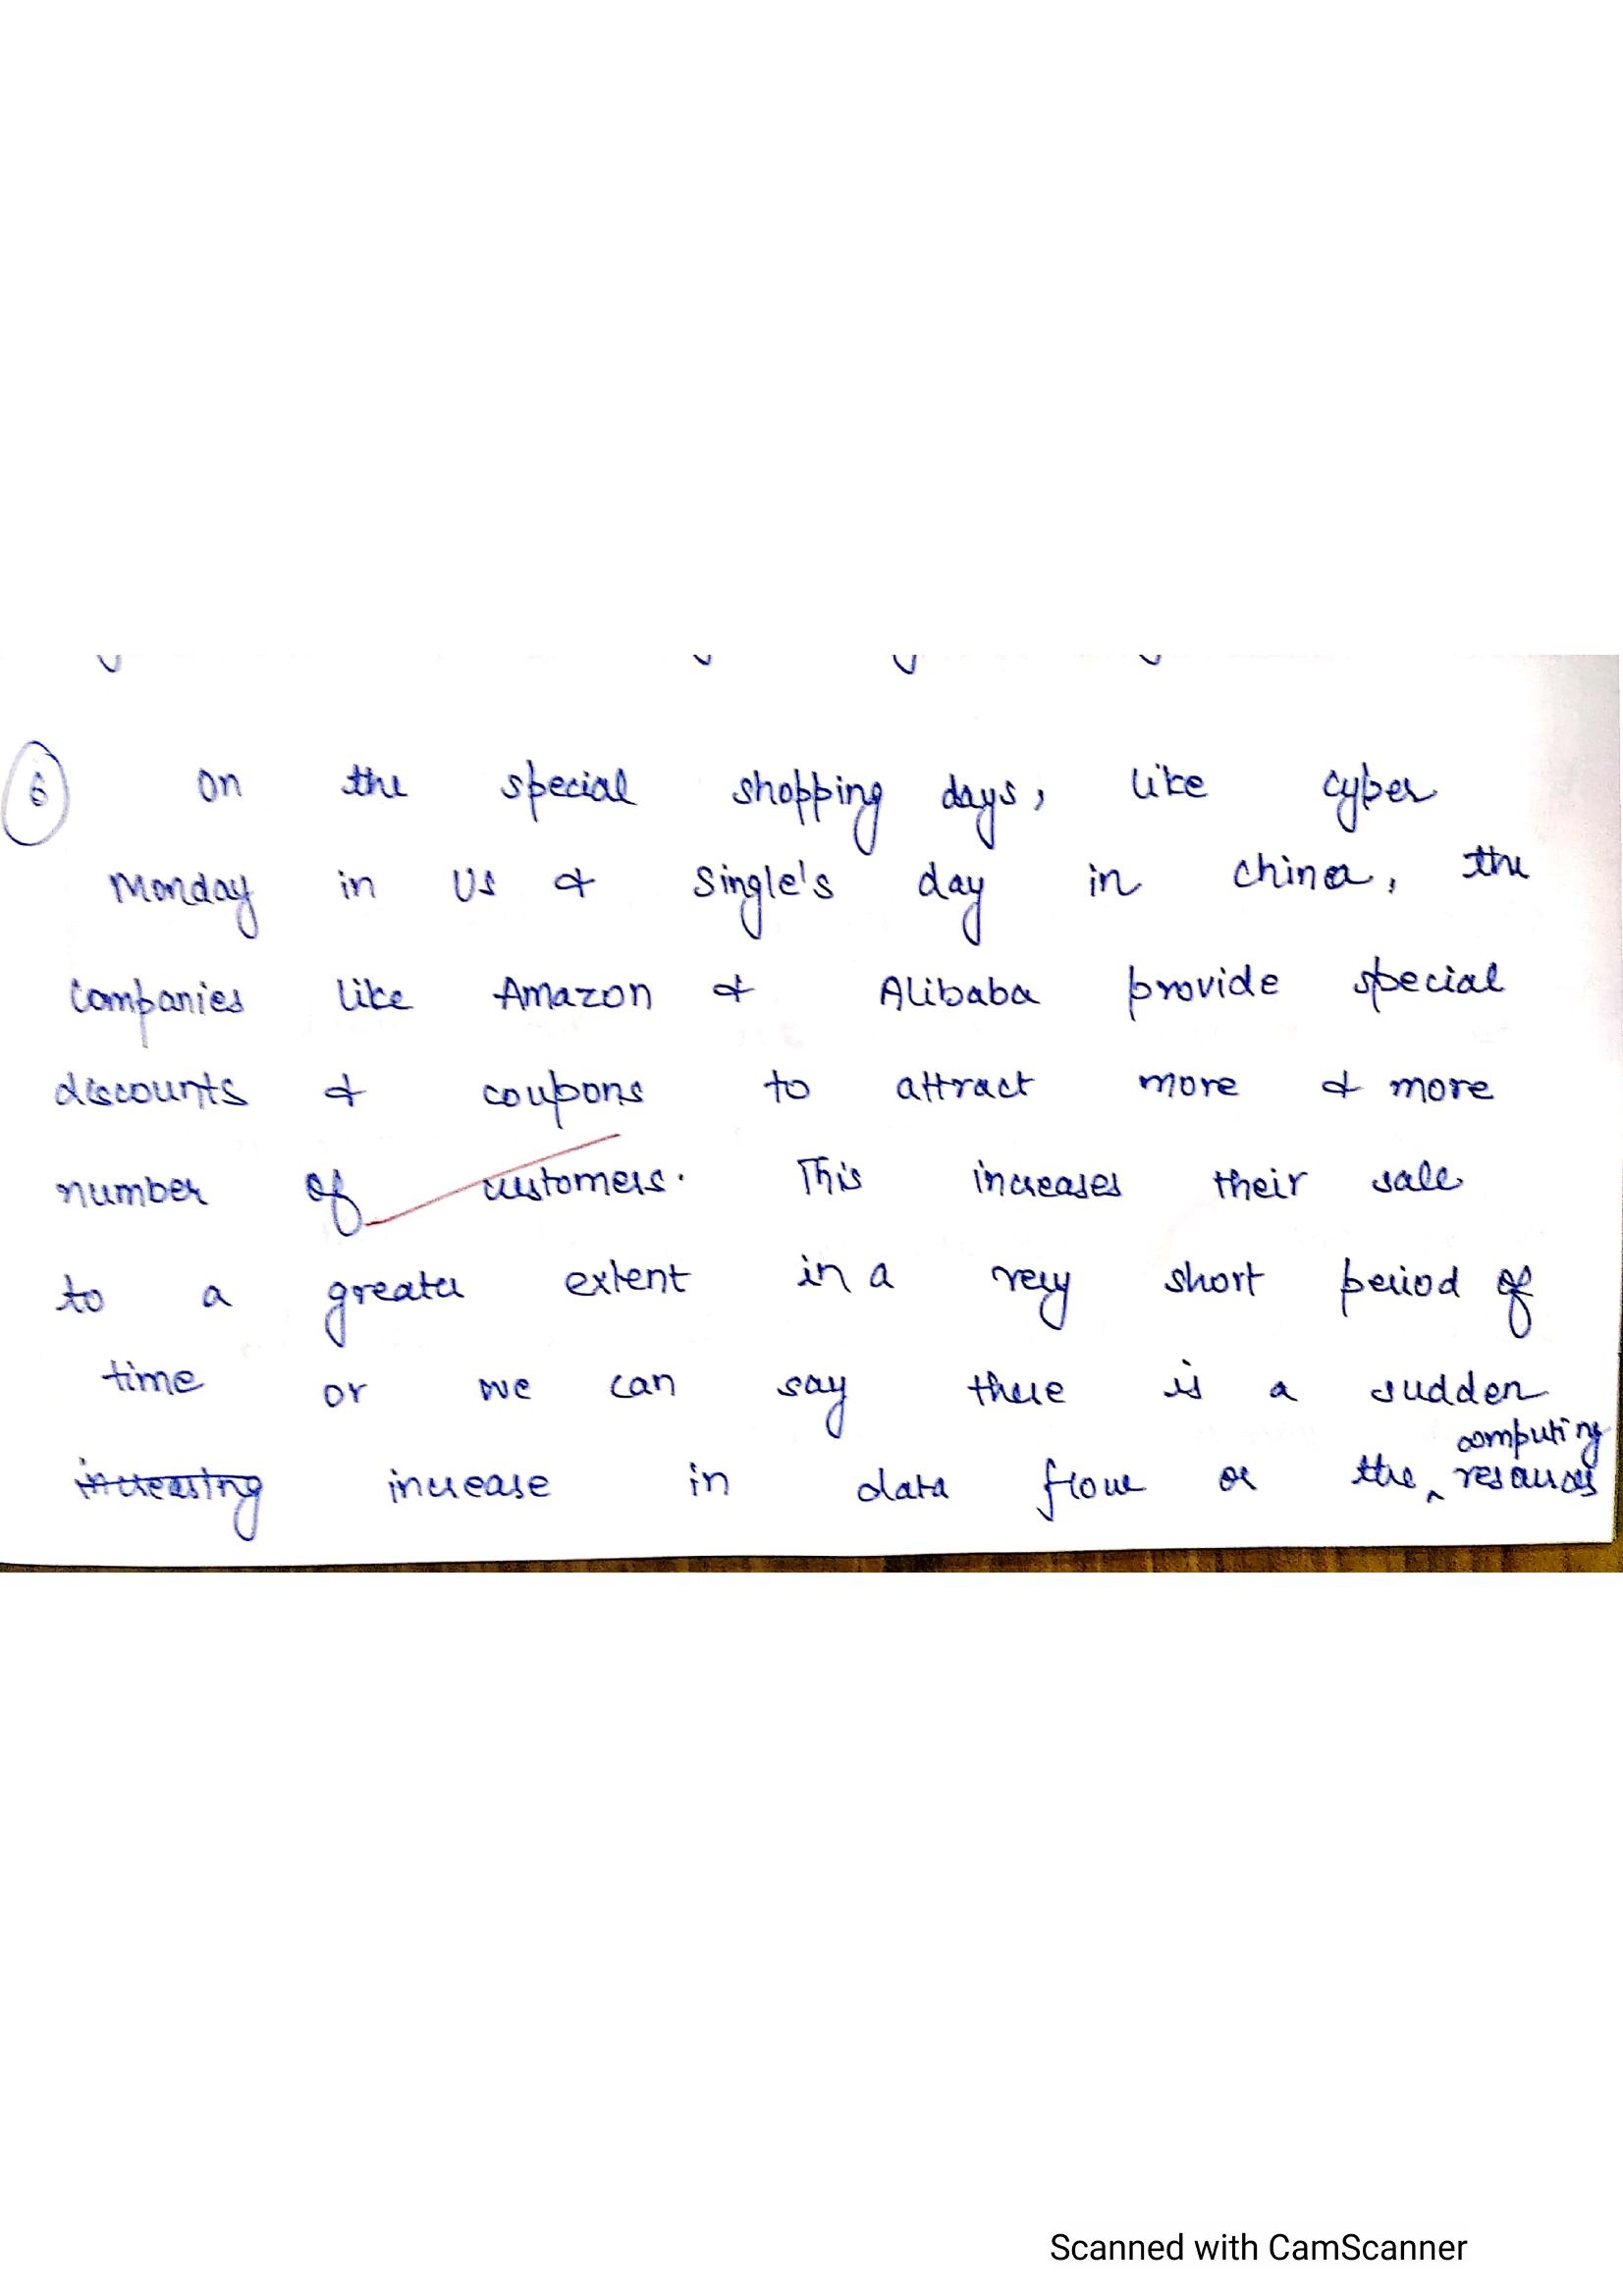 6 on the special shopping days, like cyber
Monday in US & Single's day in china, the
companies like Amazon & Alibaba provide special
discounts & coupons to attract more & more
number of customers. This increases their sale
to a greater extent in a very short period of
time or we can say there is a sudden
computing
increasing increase in data flow or the ^ resources
Scanned with CamScanner